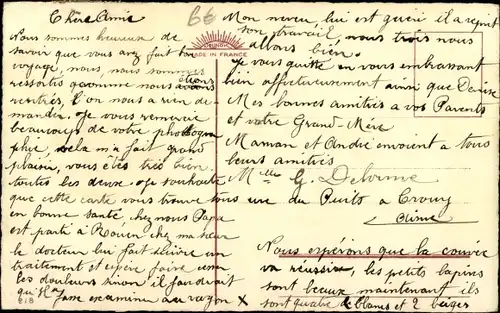 Chère Amie
Nous sommes heureuse de
savoir que vous avez fait bon
voyage, nous, nous sommes
ressortis comme nous étions
rentrés, l'on nous a rien de-
mander. Je vous remercie
beaucoup de votre photogra
phie, cela m'a fait grand
plaisir, vous êtes très bien
toutes les deux. Je souhaite
que cette carte vous trouve tous
en bonne santé, chez nous Papa
est parti à Rouen chez ma sœur
le docteur lui fait suivre un
traitement et espère faire
les douleurs sinon il faudrait
qu'il
se fasse examiner au rayon X
66
MADE IN FRANCE
Mon neveu, lui est guéri il a reprit
son travail, nous trois nous
allons bien.
Je vous quitte en vous embrassant
bien affectueusement ainsi que Denise
Mes bonnes amitiés a vos Parents
et votre Grand-Mère
Maman et André envoient a tous
leurs amitiés
Mlle G. Delorme
rue du Puits à Crouy
Aisne
Nous espérons que la couvée
va réussir, les petits lapins
sont beaux maintenant ils
sont quatre blancs et 2 beiges